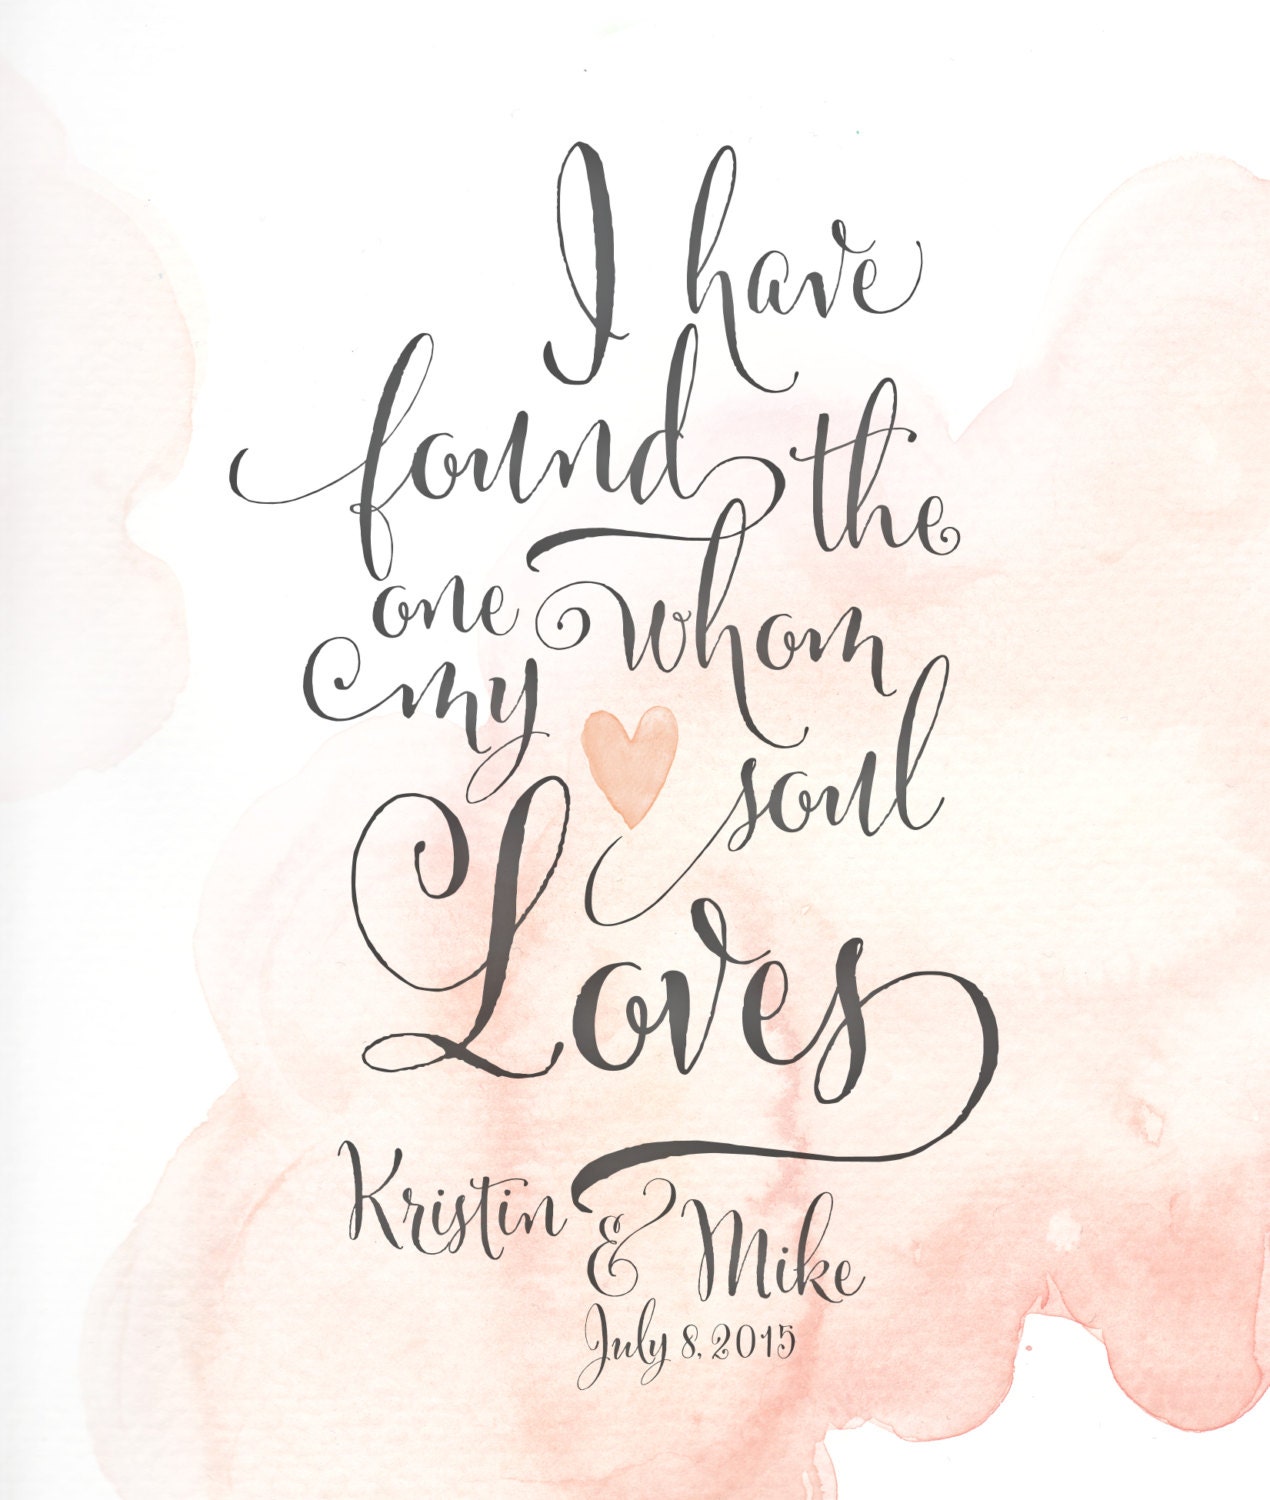 I have
found the
one whom
my soul
Loves
Kristin & Mike
July 8, 2015